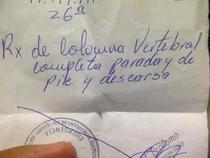 26ª
Rx de Columna Vertebral
completa parada y de
pie y descarsa
EMERGENCIA